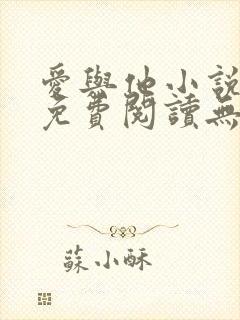 愛與他小說
免費閱讀無
蘇小酥